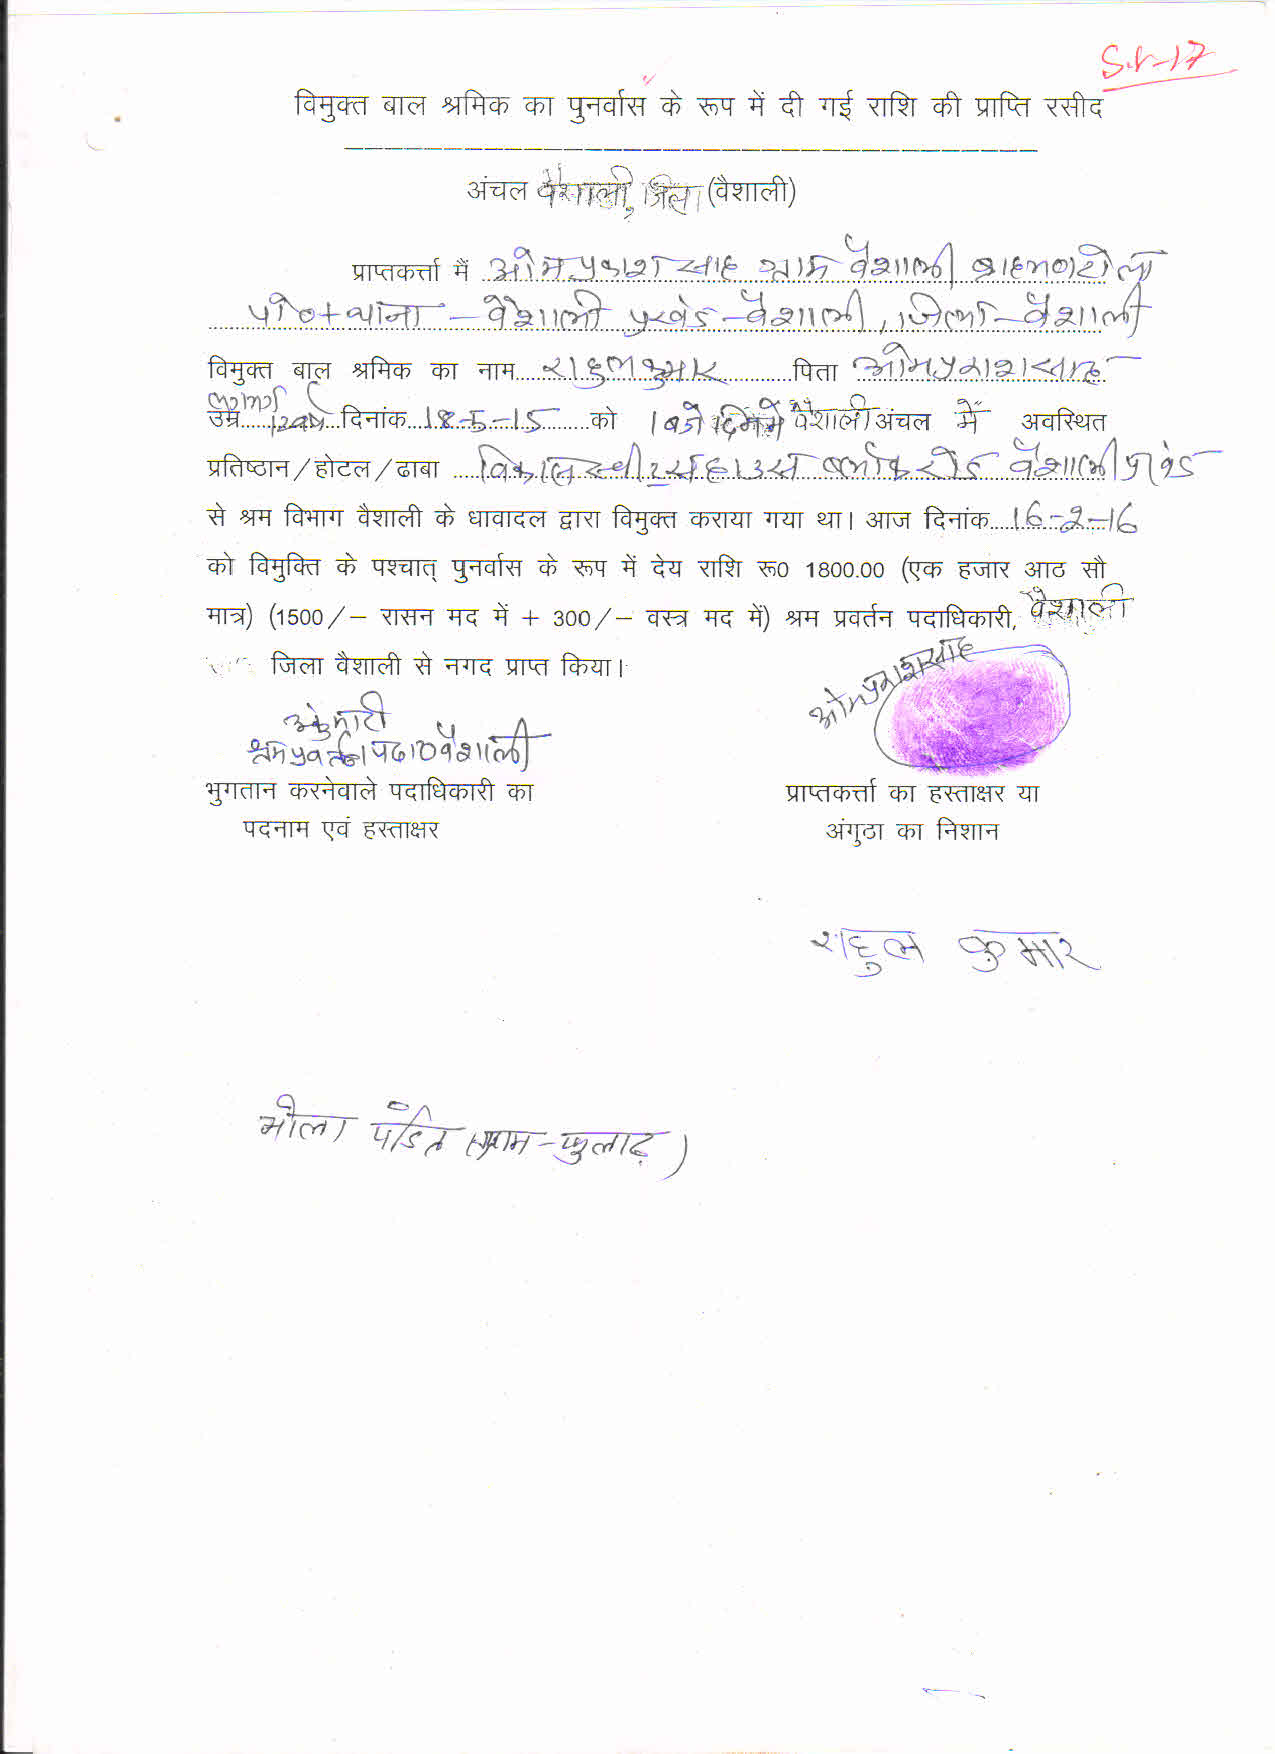 S.N-17
विमुक्त बाल श्रमिक का पुनर्वास के रूप में दी गई राशि की प्राप्ति रसीद
अंचल वैशाली, जिला (वैशाली)
प्राप्तकर्त्ता मैं ओमप्रकाश साह ग्राम वैशाली
पो०+थाना - वैशाली प्रखंड - वैशाली, जिला - वैशाली
विमुक्त बाल श्रमिक का नाम राहुल कुमार पिता ओमप्रकाश साह
उम्र 12 वर्ष दिनांक 18-5-15 को 1 बजे दिन में वैशाली अंचल में अवस्थित
प्रतिष्ठान/होटल/ढाबा विकास स्वीट्स हाउस ब्लॉक रोड वैशाली प्रखंड
से श्रम विभाग वैशाली के धावादल द्वारा विमुक्त कराया गया था। आज दिनांक 16-2-16
को विमुक्ति के पश्चात् पुनर्वास के रूप में देय राशि रू0 1800.00 (एक हजार आठ सौ
मात्र) (1500/- रासन मद में + 300/- वस्त्र मद में) श्रम प्रवर्तन पदाधिकारी, वैशाली
जिला वैशाली से नगद प्राप्त किया।
ओमप्रकाश साह
श्रम प्रवर्तन पदा० वैशाली
भुगतान करनेवाले पदाधिकारी का
पदनाम एवं हस्ताक्षर
प्राप्तकर्त्ता का हस्ताक्षर या
अंगुठा का निशान
राहुल कुमार
भोला पंडित (ग्राम - फुलाढ़)